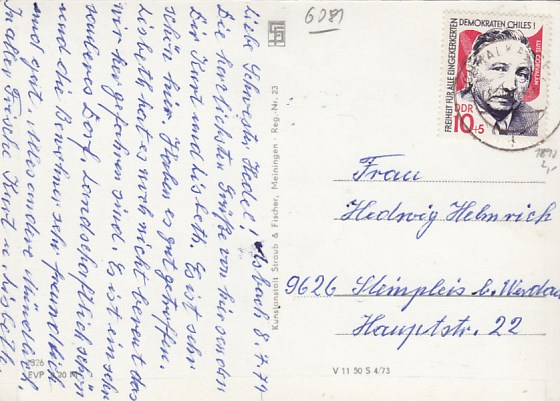 Liebe Schwester Hedel! Asbach 8.7.74
Die herzlichsten Grüße von hier senden
Dir Kurt und Lisbeth. Es ist sehr
schön hier. Haben es gut getroffen.
Lisbeth hat es noch nicht bereut das
wir hergefahren sind. Es ist ein sehr
sauberes Dorf, landschaftlich schön
und die Bewohner sehr freundlich
und gut. Alles andere Mündlich.
In alter Frische Kurt u. Lisbeth.
1326
EVP 0,20 M
Kunstanstalt Straub & Fischer, Meiningen - Reg.-Nr. 23
6081
FREIHEIT FÜR ALLE EINGEKERKERTEN
DEMOKRATEN CHILES!
LUIS CORVALAN
DDR
10+5
Frau
Hedwig Helmrich
9626 Steinpleis b. Werdau
Hauptstr. 22
V 11 50 S 4/73